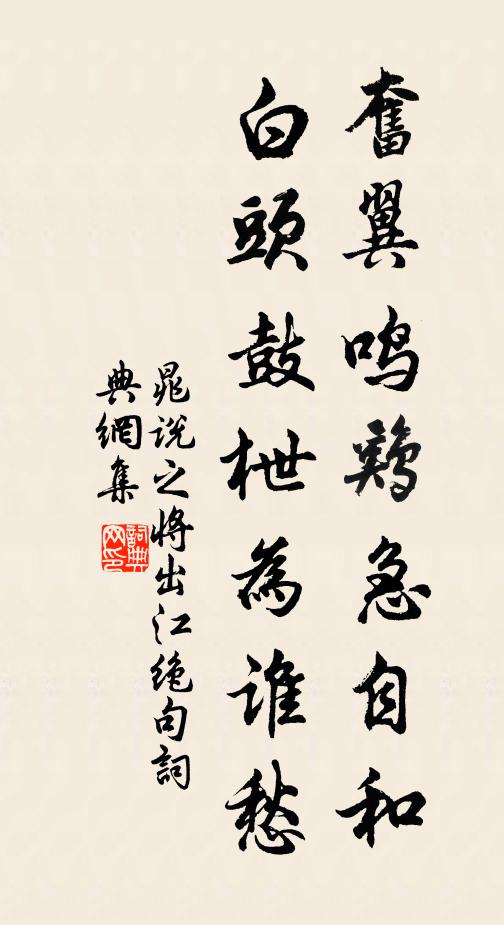 奮翼鳴鷄急自和
白頭鼓枻為誰愁
晁說之將出江絕句詞
典網集
詞典
网印